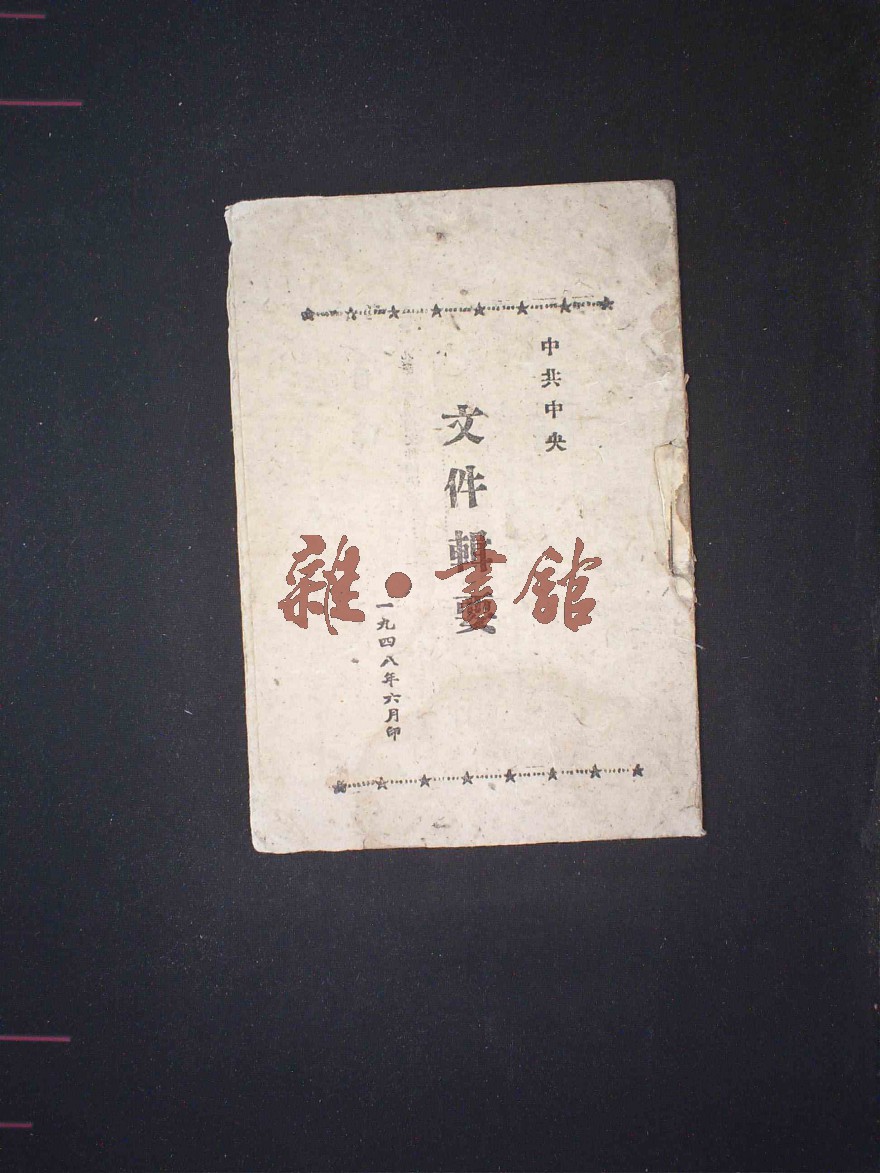 中共中央
文件輯要
一九四八年六月印
雜·書館